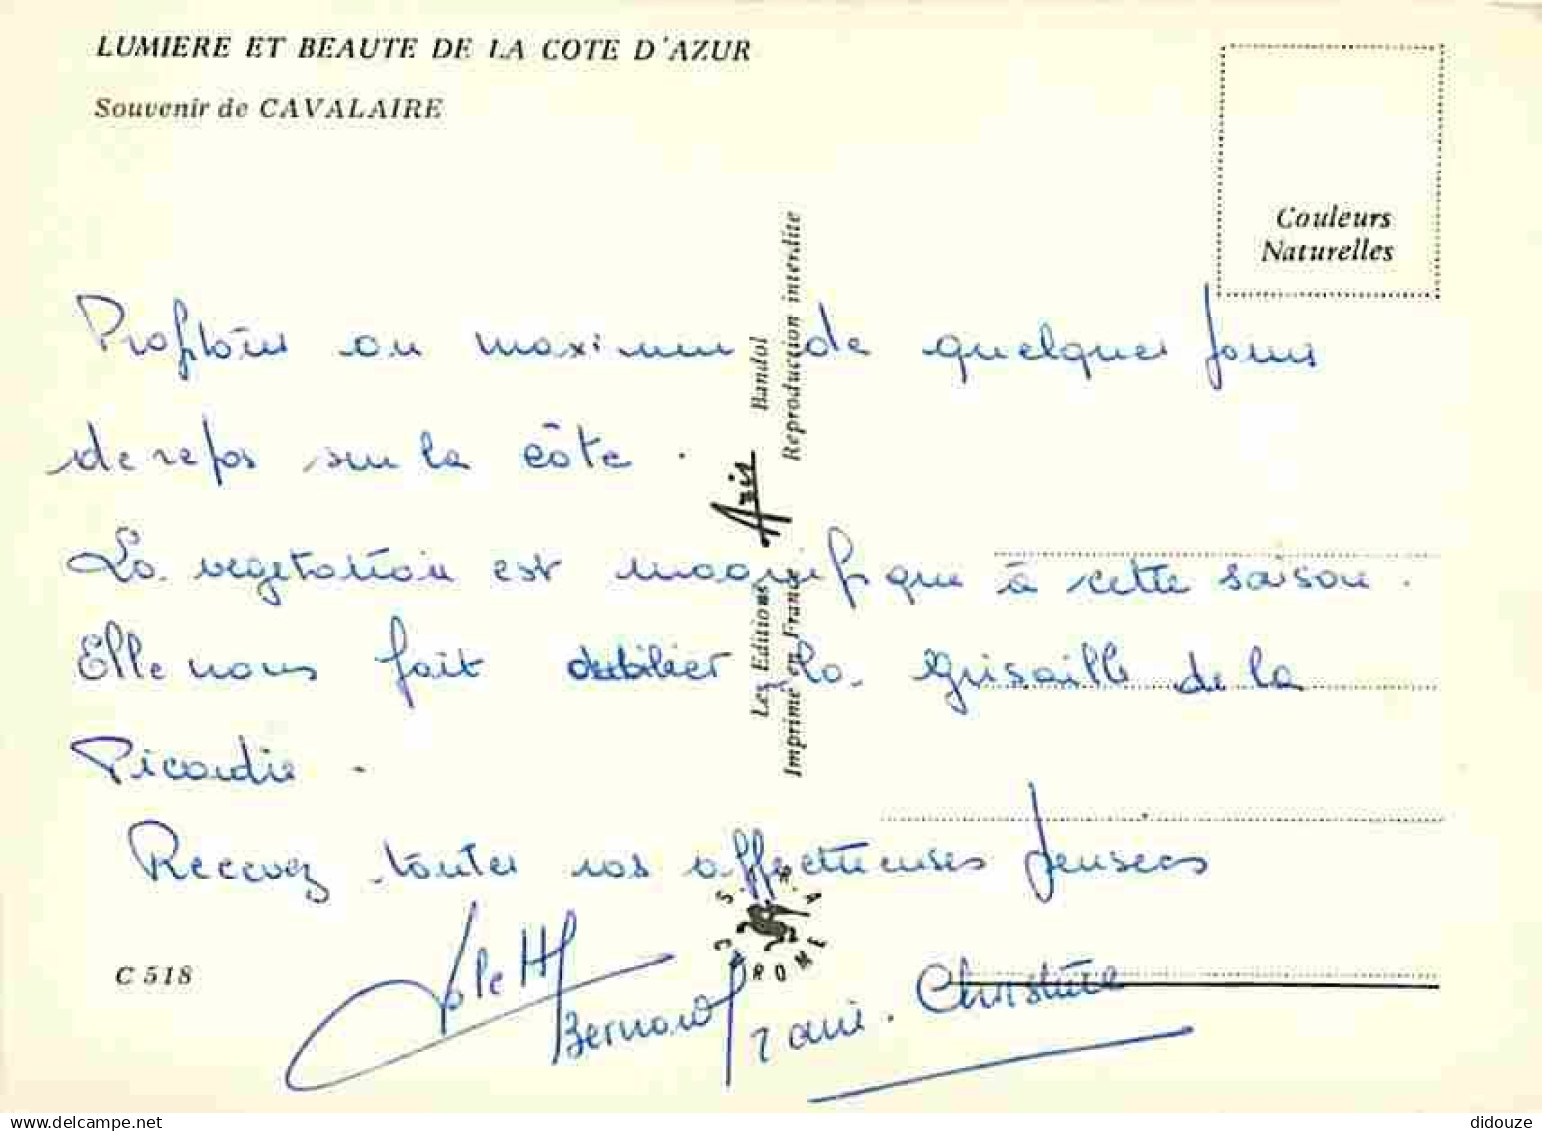 LUMIERE ET BEAUTE DE LA COTE D'AZUR
Souvenir de CAVALAIRE
Couleurs
Naturelles
Profitons au maximum de quelques jours
de repos sur la côte.
La vegetation est magnifique à cette saison.
Elle nous fait oublier la grisaille de la
Picardie.
Recevez toutes nos affectueuses pensees
Bernard
Christine
C 518
Les Editions Aris Bandol
Imprimé en France Reproduction interdite
S.P.R.A.
CHROME
didouze